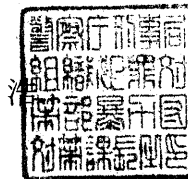 警察庁刑事局
組織犯罪対
策部暴力団
対策課長之印